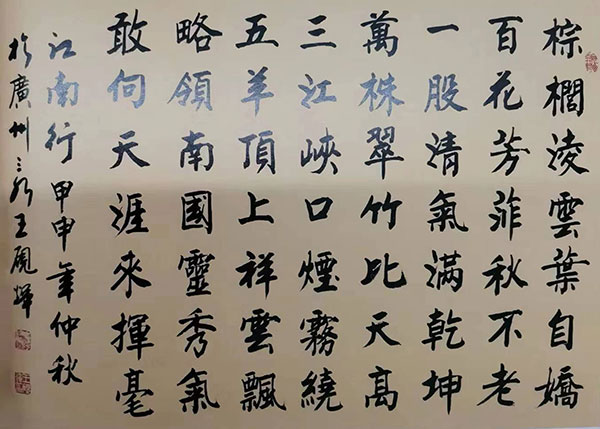 棕櫚淩雲葉自嬌
百花芳菲秋不老
一股清氣滿乾坤
萬株翠竹比天高
三江峽口煙霧繞
五羊頂上祥雲飄
略領南國靈秀氣
敢向天涯來揮毫
江南行 甲申年仲秋
於廣州 王硯輝